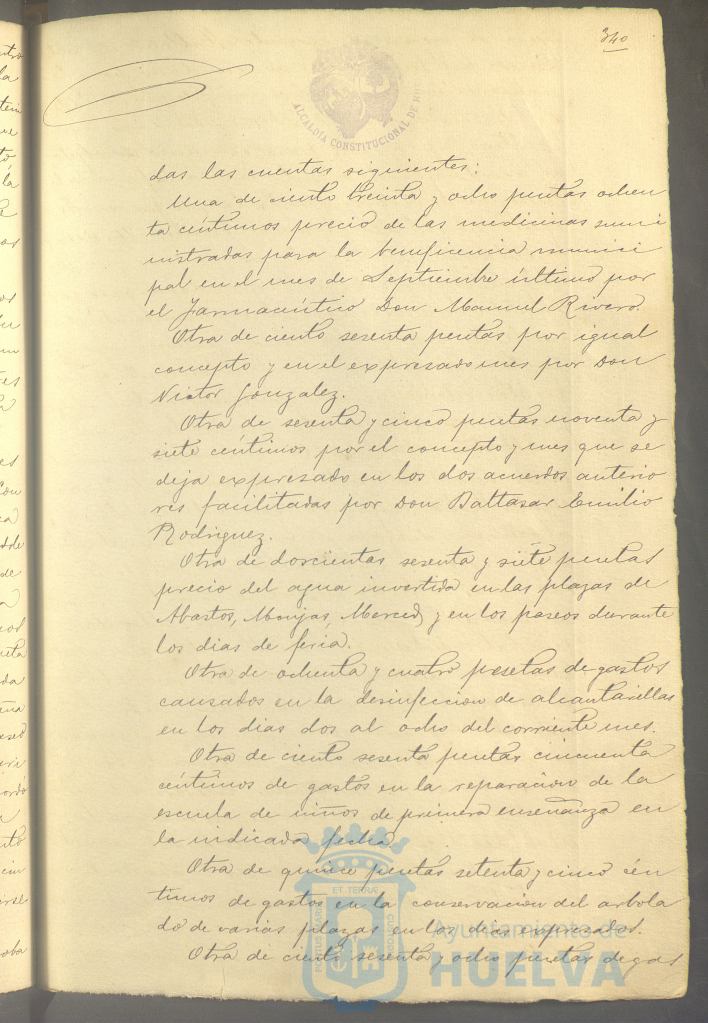 340
ALCALDÍA CONSTITUCIONAL DE HU
das las cuentas siguientes:
Una de ciento treinta y ocho pesetas ochen
ta céntimos precio de las medicinas sumi
nistradas para la beneficencia munici
pal en el mes de Septiembre último por
el farmacéutico Don Manuel Rivero.
Otra de ciento sesenta pesetas por igual
concepto y en el expresado mes por Don
Victor Gonzalez.
Otra de sesenta y cinco pesetas noventa y
siete céntimos por el concepto y mes que se
deja expresado en los dos acuerdos anterio
res facilitadas por Don Baltasar Emilio
Rodriguez.
Otra de doscientas sesenta y siete pesetas
precio del agua invertida en las plazas de
Abastos, Monjas, Merced y en los paseos durante
los dias de feria.
Otra de ochenta y cuatro pesetas de gastos
causados en la desinfeccion de alcantarillas
en los dias dos al ocho del corriente mes.
Otra de ciento sesenta pesetas cincuenta
céntimos de gastos en la reparacion de la
escuela de niños de primera enseñanza en
la indicada fecha.
Otra de quince pesetas setenta y cinco cén
timos de gastos en la conservacion del arbola
do de varias plazas en los dias expresados.
Otra de ciento sesenta y ocho pesetas de gas
Ayuntamiento de
HUELVA